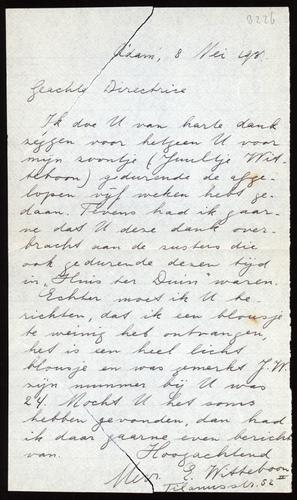 8226
A'dam, 8 Mei 19
Geachte Directrice
Ik doe U van harte dank
zeggen voor hetgeen U voor
mijn zoontje (Juultje Wit-
teboon) gedurende de afge-
lopen vijf weken hebt ge-
daan. Tevens had ik gaar-
ne dat U deze dank over-
bracht aan de susters die
ook gedurende dezen tijd
in „Huis ter Duin" waren.
Echter moet ik U be-
richten, dat ik een blousje
te weinig heb ontvangen,
het is een heel licht
blousje en was gemerkt J.W.
zijn nummer bij U was
24. Mocht U het soms
hebben gevonden, dan had
ik daar gaarne even bericht
van. Hoogachtend
Mevr. E. Witteboon
Titanusstr. 52 II